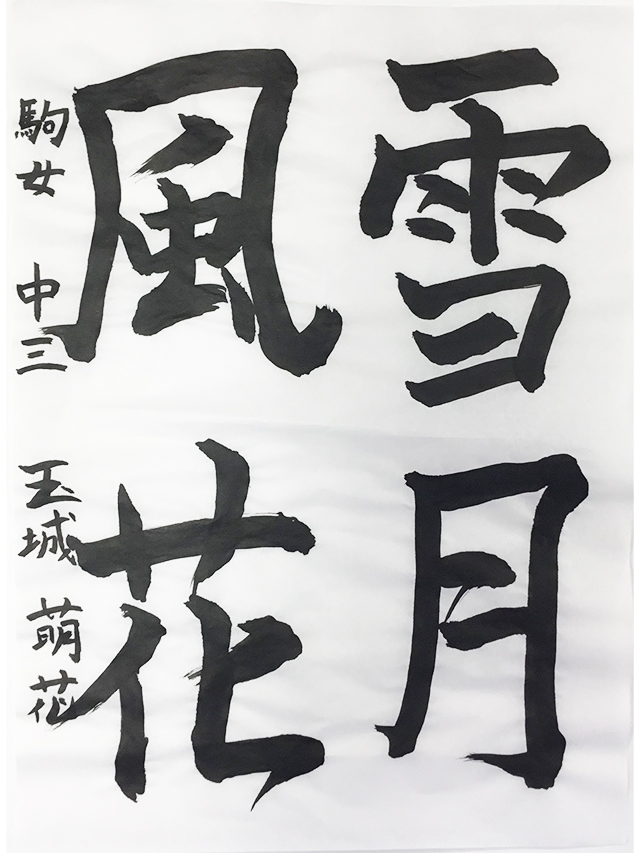 雪月
風花
駒女 中三 玉城 萌花